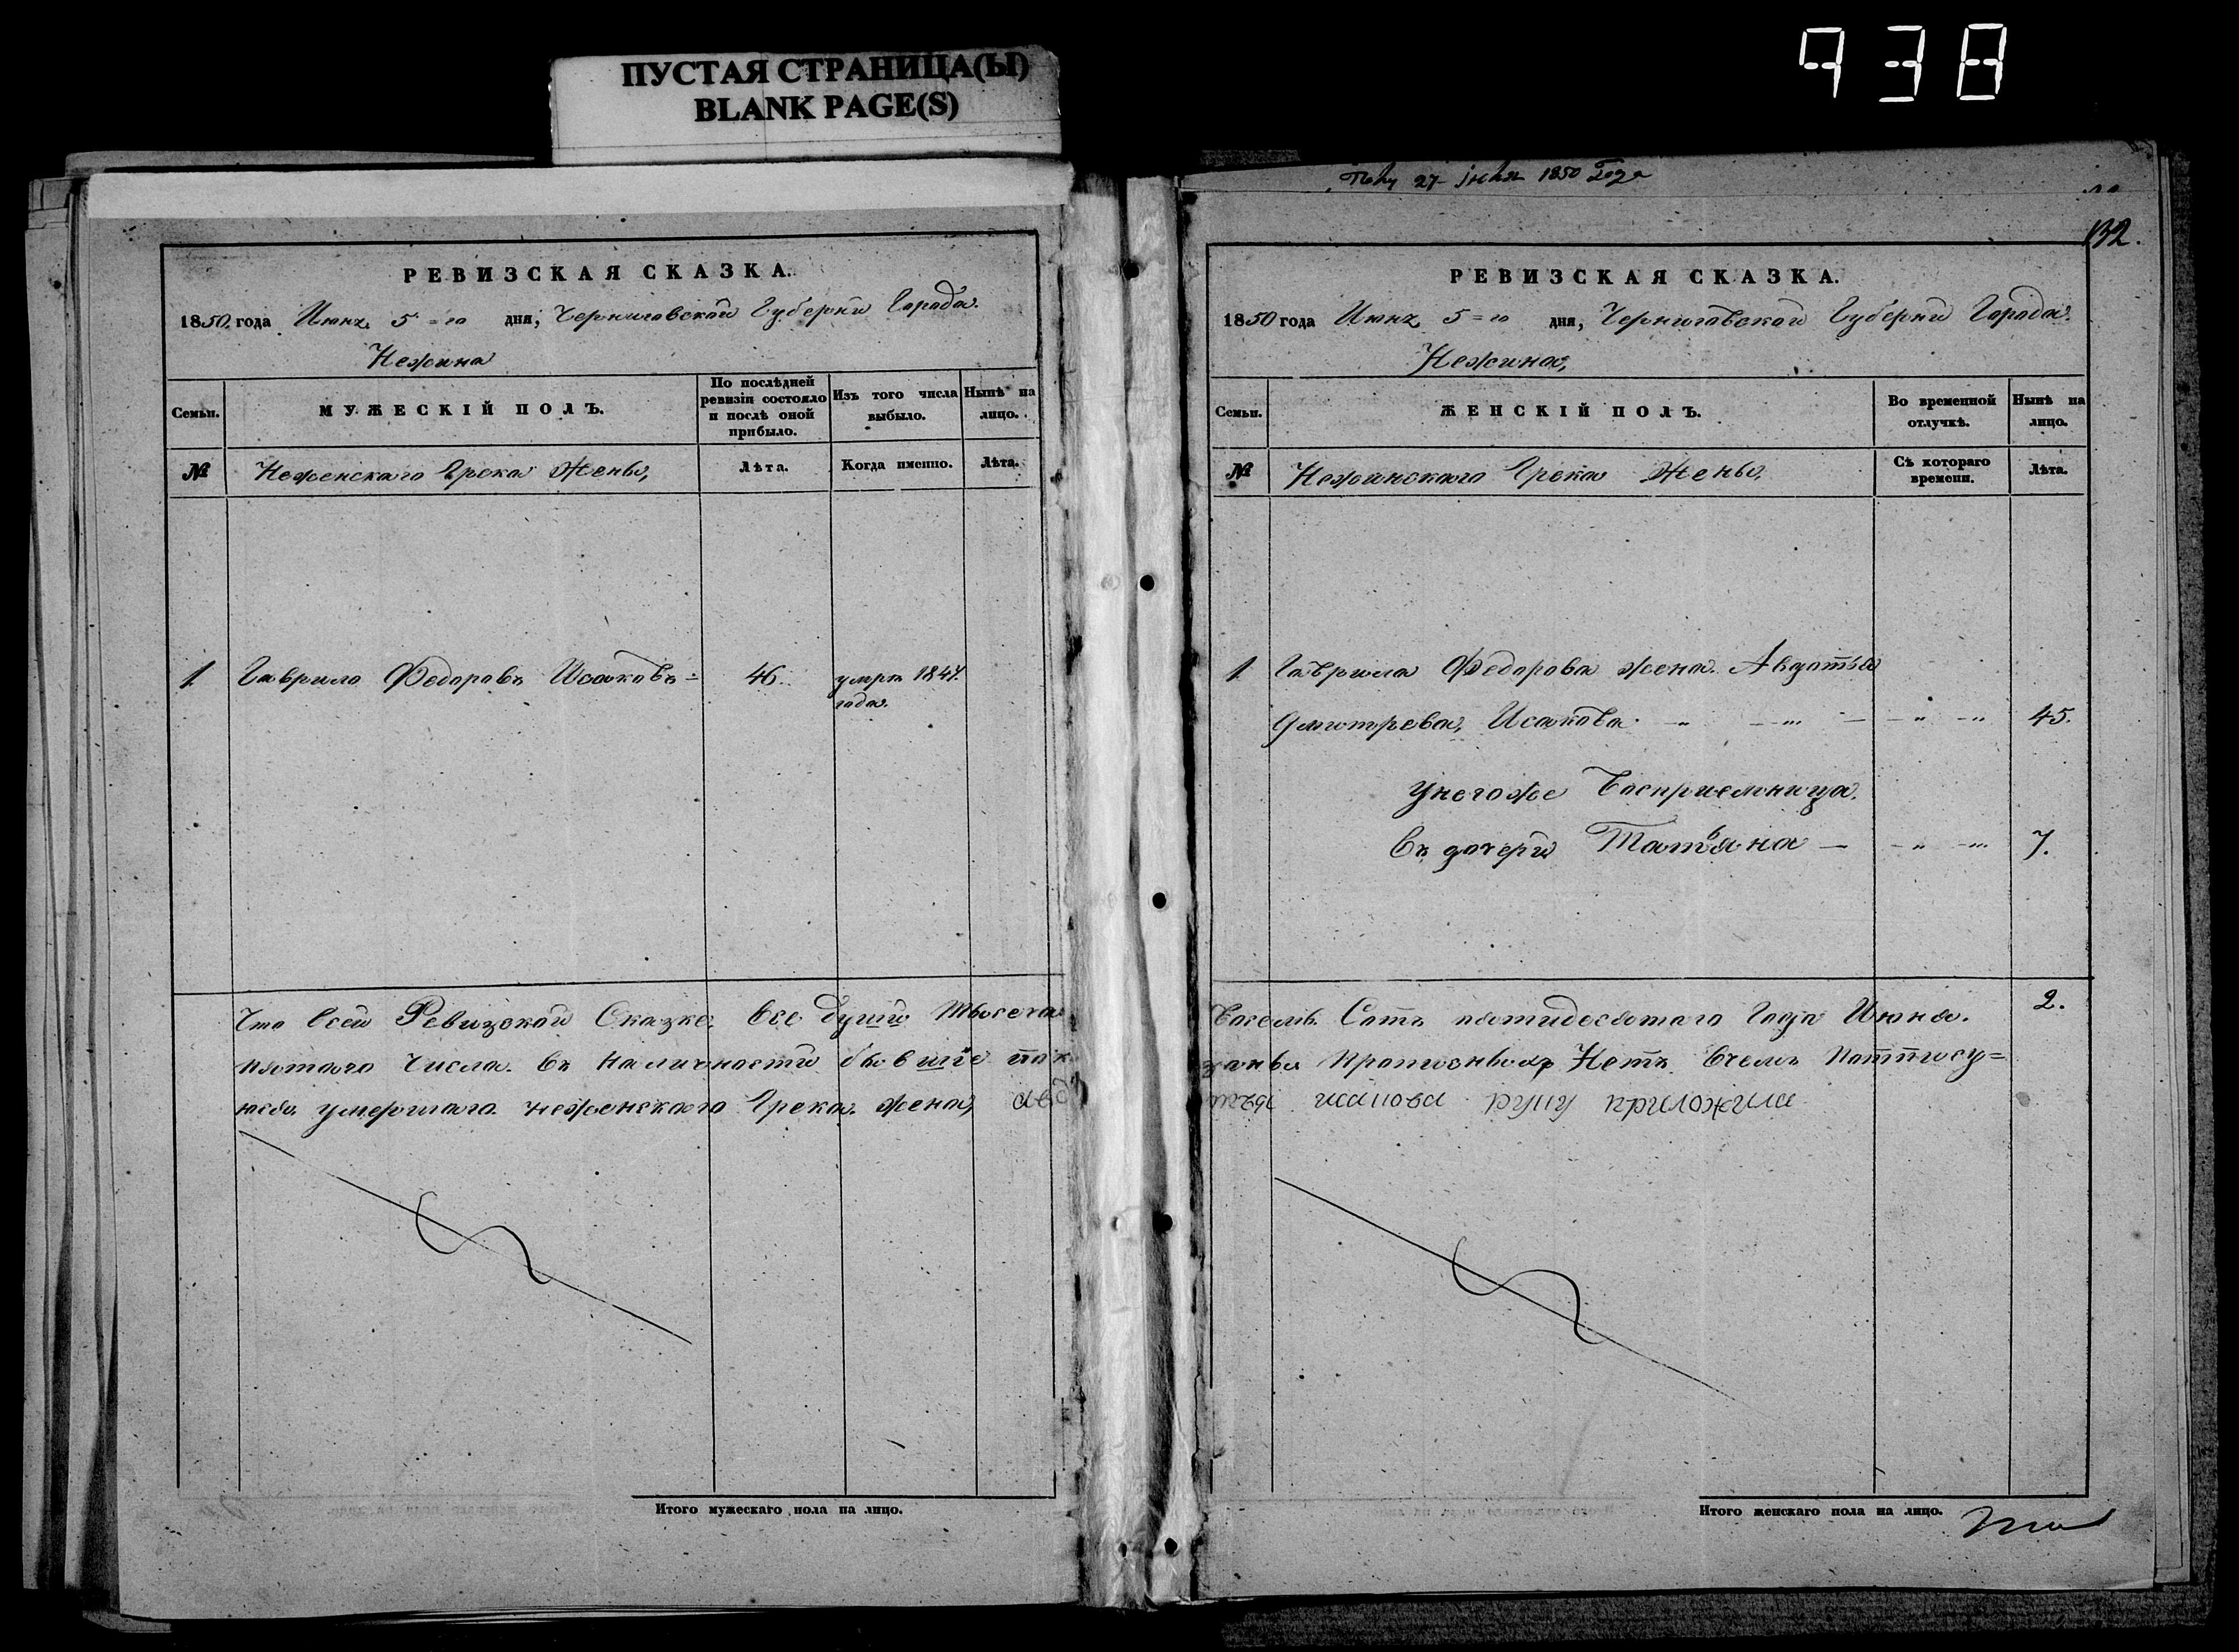 ПУСТАЯ СТРАНИЦА(Ы)
BLANK PAGE(S)
938
27 Іюня 1850 Года
132.
РЕВИЗСКАЯ СКАЗКА.
1850 года Июня 5=го дня, Черниговской Губерни Города
Нежина
Семьи.
МУЖЕСКІЙ ПОЛЪ.
По послѣдней ревизіи состояло и послѣ оной прибыло.
Изъ того числа выбыло.
Нынѣ на лицо.
№
Неженскаго Грека Жены,
Лѣта.
Когда именно.
Лѣта.
1 Гаврило Федоровъ Исаковъ = 46. умеръ 1847.
года.
Что Всей Ревизской Сказке. Все души Тысеча
пятаго Числа. Въ Наличности бывшие
умершаго неженскаго Грека жена,
Итого мужескаго пола на лицо.
РЕВИЗСКАЯ СКАЗКА.
1850 года Июня 5=го дня, Черниговской Губерни Города
Нежина,
Семьи.
ЖЕНСКІЙ ПОЛЪ.
Во временной отлучкѣ.
Нынѣ на лицо.
№
Нежинскаго Грека Жены,
Съ котораго времени.
Лѣта.
1 Гаврила Федорова жена Авдотья
Дмитрева, Исакова 45.
Унегоже Восприемница.
Въ дочери Татьяна — 7.
2.
Восемь Сотъ пятидесятаго Года Июня.
Нетъ Вчемъ
Итого женскаго пола на лицо.